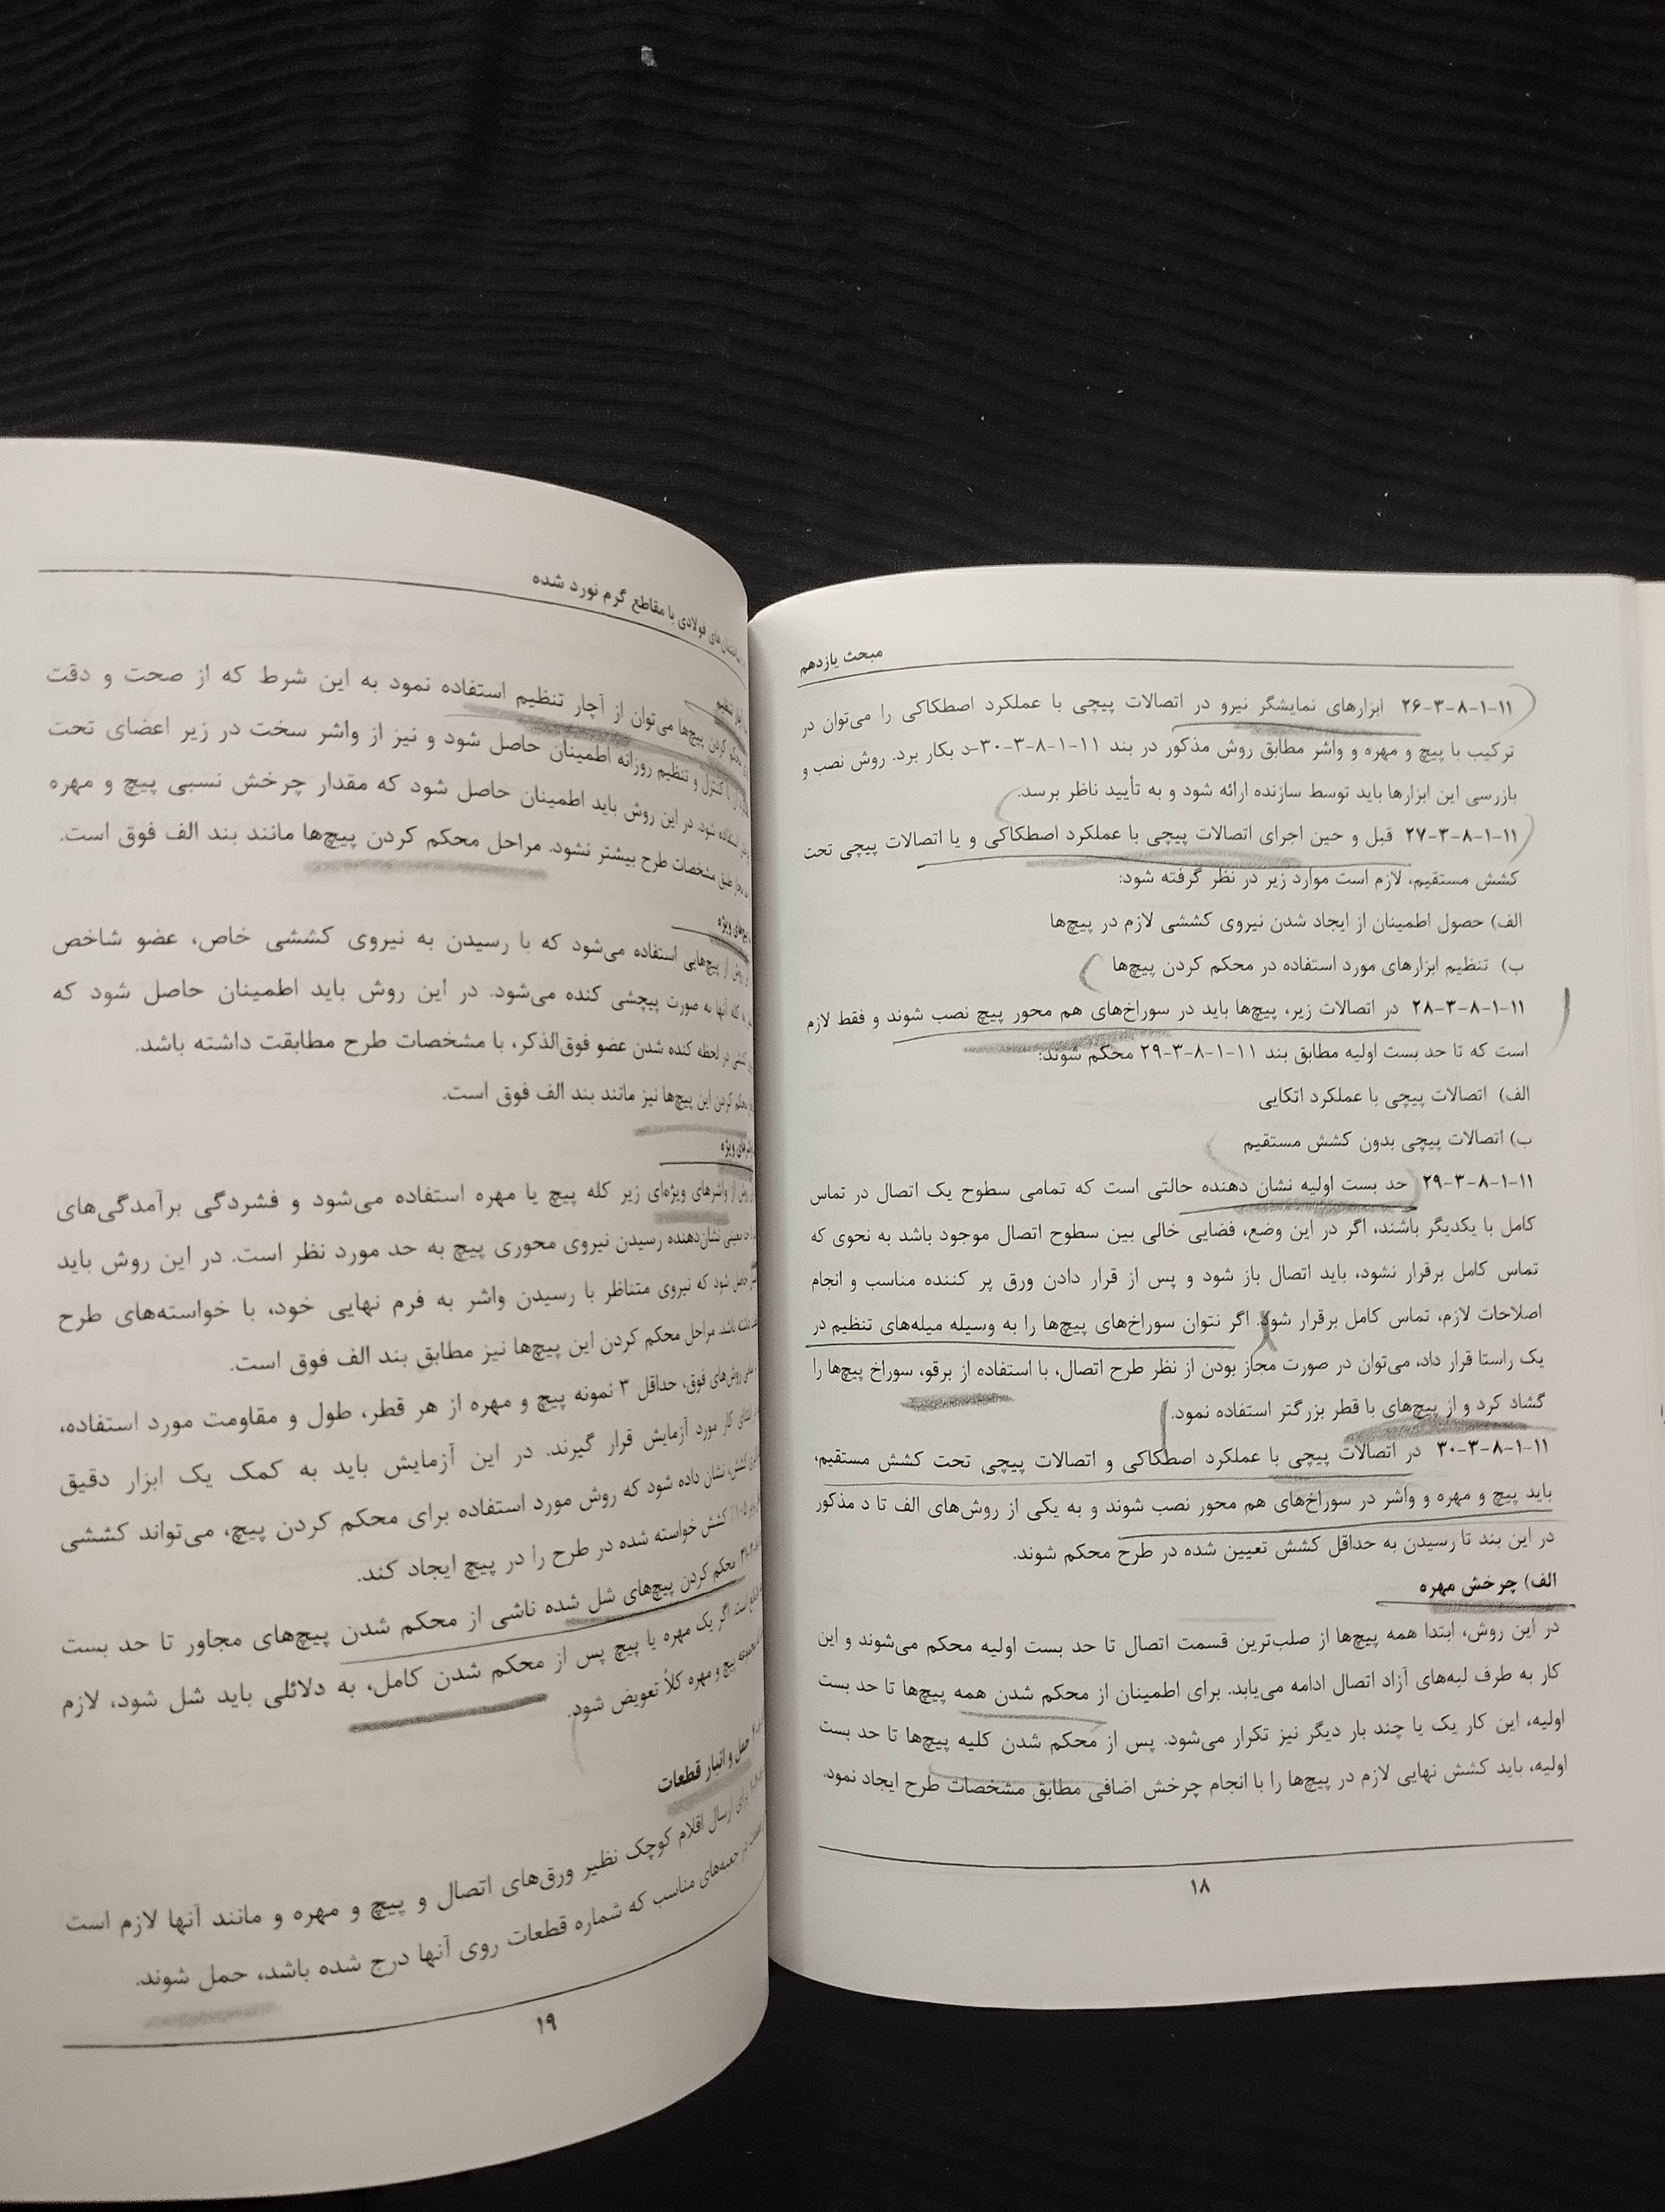 مبحث یازدهم
۱۱-۱-۸-۳-۲۶ ابزارهای نمایشگر نیرو در اتصالات پیچی با عملکرد اصطکاکی را می‌توان در
ترکیب با پیچ و مهره و واشر مطابق روش مذکور در بند ۱۱-۱-۸-۳-۳۰-د بکار برد. روش نصب و
بازرسی این ابزارها باید توسط سازنده ارائه شود و به تأیید ناظر برسد.
۱۱-۱-۸-۳-۲۷ قبل و حین اجرای اتصالات پیچی با عملکرد اصطکاکی و یا اتصالات پیچی تحت
کشش مستقیم، لازم است موارد زیر در نظر گرفته شود:
الف) حصول اطمینان از ایجاد شدن نیروی کششی لازم در پیچ‌ها
ب) تنظیم ابزارهای مورد استفاده در محکم کردن پیچ‌ها
۱۱-۱-۸-۳-۲۸ در اتصالات زیر، پیچ‌ها باید در سوراخ‌های هم محور پیچ نصب شوند و فقط لازم
است که تا حد بست اولیه مطابق بند ۱۱-۱-۸-۳-۲۹ محکم شوند:
الف) اتصالات پیچی با عملکرد اتکایی
ب) اتصالات پیچی بدون کشش مستقیم
۱۱-۱-۸-۳-۲۹ حد بست اولیه نشان دهنده حالتی است که تمامی سطوح یک اتصال در تماس
کامل با یکدیگر باشند، اگر در این وضع، فضایی خالی بین سطوح اتصال موجود باشد به نحوی که
تماس کامل برقرار نشود، باید اتصال باز شود و پس از قرار دادن ورق پر کننده مناسب و انجام
اصلاحات لازم، تماس کامل برقرار شود. اگر نتوان سوراخ‌های پیچ‌ها را به وسیله میله‌های تنظیم در
یک راستا قرار داد، می‌توان در صورت مجاز بودن از نظر طرح اتصال، با استفاده از برقو، سوراخ پیچ‌ها را
گشاد کرد و از پیچ‌های با قطر بزرگتر استفاده نمود.
۱۱-۱-۸-۳-۳۰ در اتصالات پیچی با عملکرد اصطکاکی و اتصالات پیچی تحت کشش مستقیم،
باید پیچ و مهره و واشر در سوراخ‌های هم محور نصب شوند و به یکی از روش‌های الف تا د مذکور
در این بند تا رسیدن به حداقل کشش تعیین شده در طرح محکم شوند.
الف) چرخش مهره
در این روش، ابتدا همه پیچ‌ها از صلب‌ترین قسمت اتصال تا حد بست اولیه محکم می‌شوند و این
کار به طرف لبه‌های آزاد اتصال ادامه می‌یابد. برای اطمینان از محکم شدن همه پیچ‌ها تا حد بست
اولیه، این کار یک یا چند بار دیگر نیز تکرار می‌شود. پس از محکم شدن کلیه پیچ‌ها تا حد بست
اولیه، باید کشش نهایی لازم در پیچ‌ها را با انجام چرخش اضافی مطابق مشخصات طرح ایجاد نمود.
۱۸
فولادی با مقاطع گرم نورد شده
تنظیم
محکم کردن پیچ‌ها می‌توان از آچار تنظیم استفاده نمود به این شرط که از صحت و دقت
کنترل و تنظیم روزانه اطمینان حاصل شود و نیز از واشر سخت در زیر اعضای تحت
استفاده شود. در این روش باید اطمینان حاصل شود که مقدار چرخش نسبی پیچ و مهره
طبق مشخصات طرح بیشتر نشود. مراحل محکم کردن پیچ‌ها مانند بند الف فوق است.
ویژه
از پیچ‌هایی استفاده می‌شود که با رسیدن به نیروی کششی خاص، عضو شاخص
کله آنها به صورت پیچشی کنده می‌شود. در این روش باید اطمینان حاصل شود که
در لحظه کنده شدن عضو فوق‌الذکر، با مشخصات طرح مطابقت داشته باشد.
محکم کردن این پیچ‌ها نیز مانند بند الف فوق است.
ویژه
از واشرهای ویژه‌ای زیر کله پیچ یا مهره استفاده می‌شود و فشردگی برآمدگی‌های
معینی نشان‌دهنده رسیدن نیروی محوری پیچ به حد مورد نظر است. در این روش باید
حاصل شود که نیروی متناظر با رسیدن واشر به فرم نهایی خود، با خواسته‌های طرح
داشته باشد. مراحل محکم کردن این پیچ‌ها نیز مطابق بند الف فوق است.
روش‌های فوق، حداقل ۳ نمونه پیچ و مهره از هر قطر، طول و مقاومت مورد استفاده،
کار مورد آزمایش قرار گیرند. در این آزمایش باید به کمک یک ابزار دقیق
کشش، نشان داده شود که روش مورد استفاده برای محکم کردن پیچ، می‌تواند کششی
کشش خواسته شده در طرح را در پیچ ایجاد کند.
محکم کردن پیچ‌های شل شده ناشی از محکم شدن پیچ‌های مجاور تا حد بست
است. اگر یک مهره یا پیچ پس از محکم شدن کامل، به دلائلی باید شل شود، لازم
پیچ و مهره کلاً تعویض شود.
حمل و انبار قطعات
برای ارسال اقلام کوچک نظیر ورق‌های اتصال و پیچ و مهره و مانند آنها لازم است
جعبه‌های مناسب که شماره قطعات روی آنها درج شده باشد، حمل شوند.
۱۹